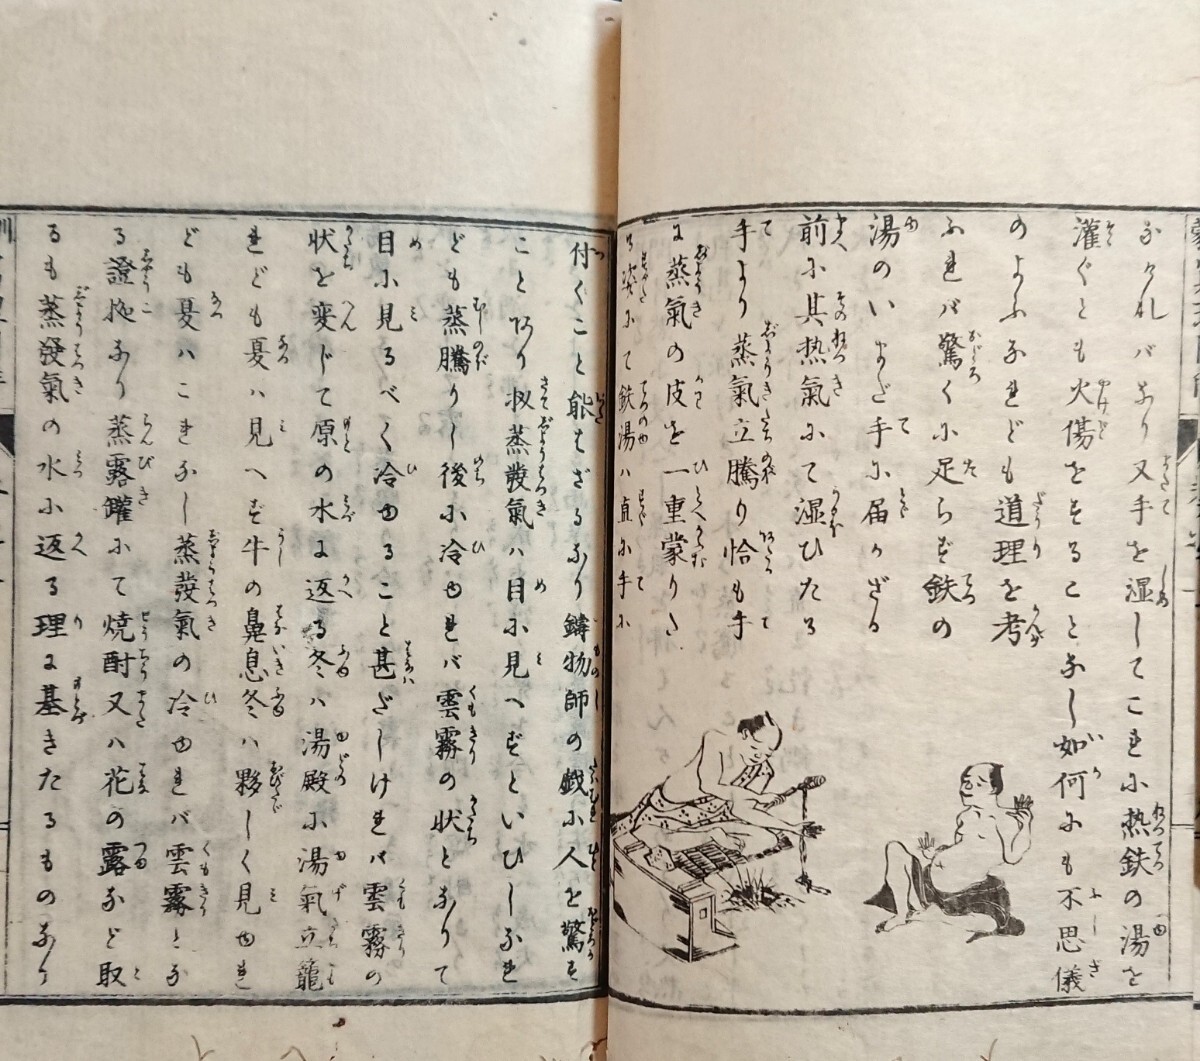 なければなり又手を湿してこれに热鉄の湯を
灌ぐとも火傷をすることなし如何にも不思儀
のよふなれども道理を考
ふれバ驚くに足らず鉄の
湯のいまだ手に届かざる
前に其热氣にて湿ひたる
手より蒸氣立騰り恰も手
に蒸氣の皮を一重蒙りた
る姿にて鉄湯ハ直に手に
付くこと能はざるなり鑄物師の戯に人を驚す
ことあり扨蒸發氣ハ目に見へずといひしなれ
ども蒸騰りし後に冷ゆれバ雲霧の状となりて
目に見るべく冷ゆること甚だしけれバ雲霧の
状を変じて原の水に返る冬ハ湯殿に湯氣立籠
れども夏ハ見へず牛の鼻息冬ハ夥しく見ゆれ
ども夏ハこれなし蒸發氣の冷ゆれバ雲霧とな
る證拠なり蒸露罐にて焼酎又ハ花の露など取
るも蒸發氣の水に返る理に基きたるものなり